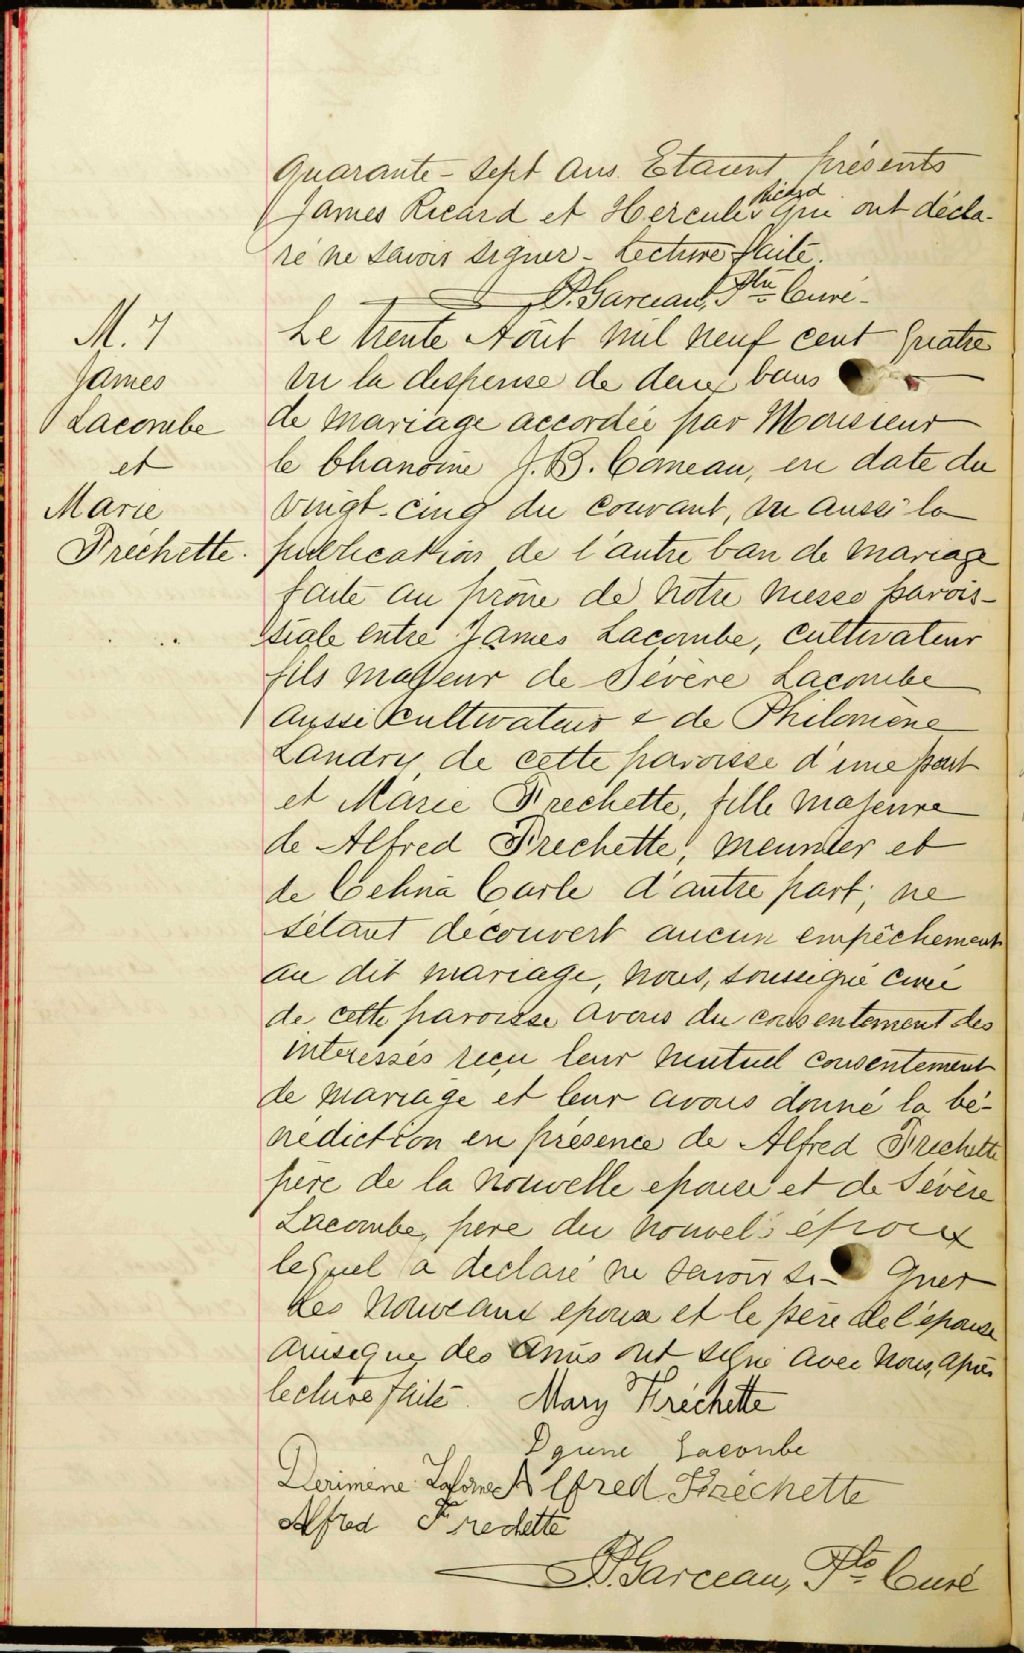 quarante-sept ans. Etaient présents
James Ricard et Hercule Ricard qui ont décla-
ré ne savoir signer - Lecture faite.
P. Garceau, Ptre Curé -
M. 7
James
Lacombe
et
Marie
Fréchette.
Le trente Août mil neuf cent quatre
vu la dispense de deux bans
de mariage accordée par Monsieur
le Chanoine J. B. Comeau, en date du
vingt-cinq du courant, vu aussi la
publication de l'autre ban de mariage
faite au prône de notre messe parois-
siale entre James Lacombe, cultivateur
fils majeur de Sévère Lacombe
aussi cultivateur & de Philomène
Landry, de cette paroisse d'une part
et Marie Frechette, fille majeure
de Alfred Frechette, meunier et
de Celina Carle d'autre part; ne
s'étant découvert aucun empêchement
au dit mariage, nous, soussigné curé
de cette paroisse avons du consentement des
intéressés reçu leur mutuel consentement
de mariage et leur avons donné la bé-
nédiction en présence de Alfred Frechette
père de la nouvelle epouse et de Sévère
Lacombe, pere du nouvel époux
lequel a declaré ne savoir si- gner
Les nouveaux epoux et le père de l'épouse
ainsique des amis ont signé avec nous, après
lecture faite. Mary Fréchette
Lacombe
Derimène Alfred Fréchette
Alfred Frechette
P. Garceau, Ptre Curé